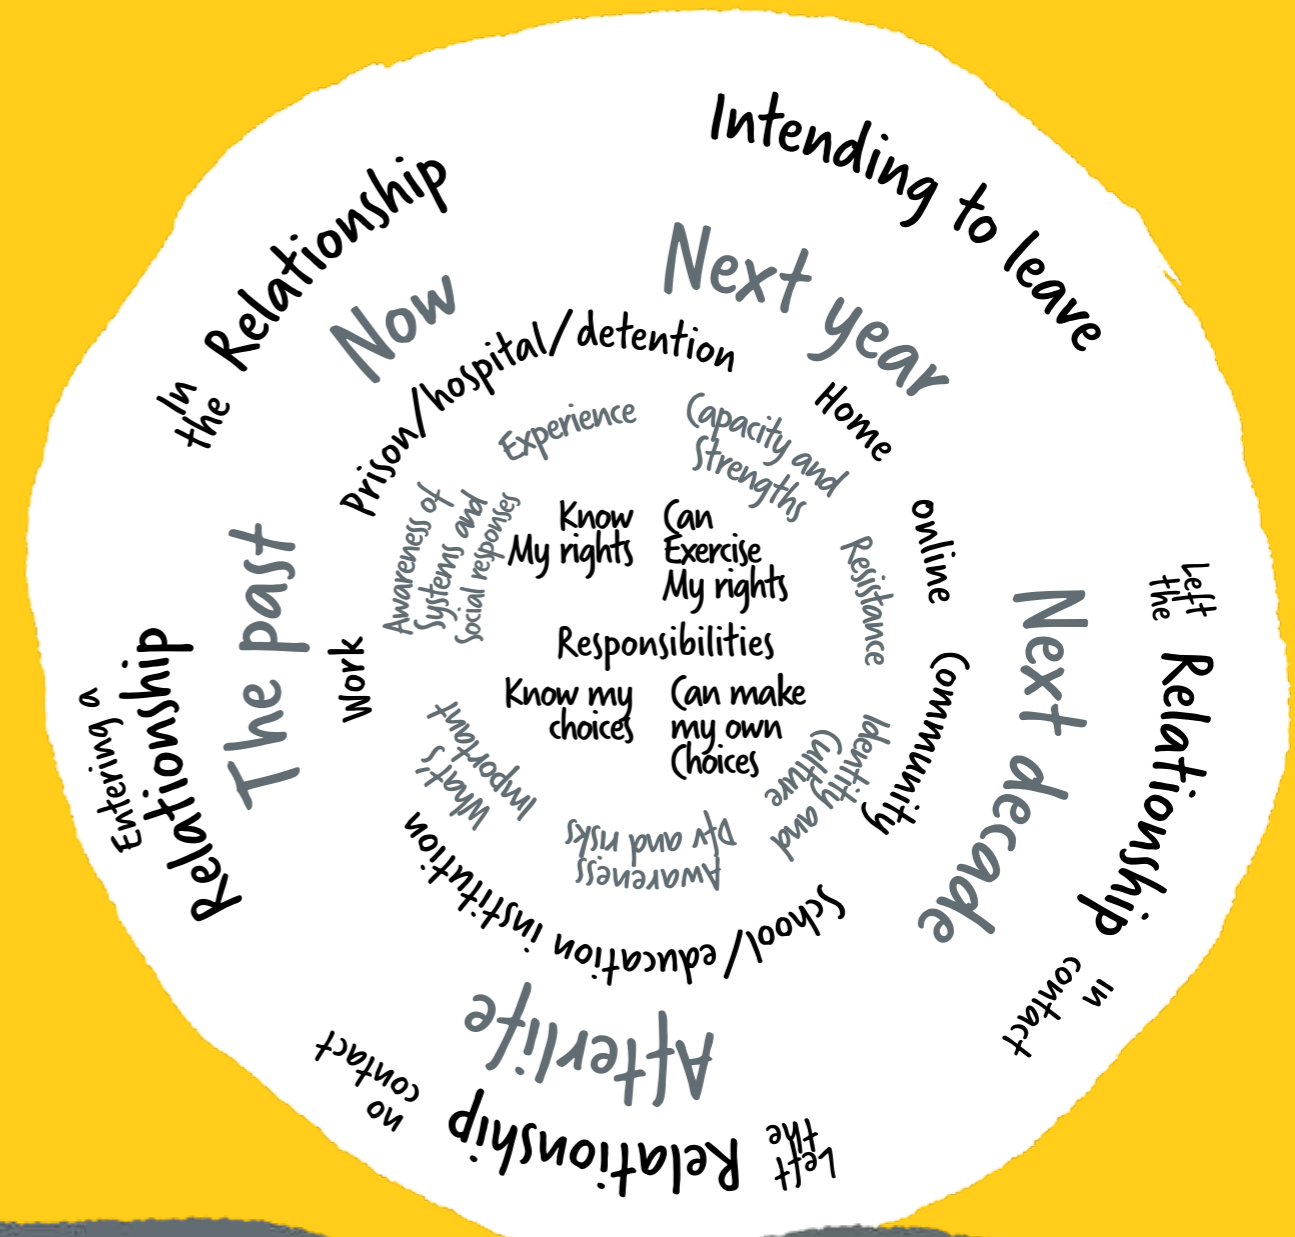 Intending to leave
Left the Relationship in contact
Left the Relationship no contact
Entering a Relationship
In the Relationship
Now
Next year
Next decade
Afterlife
The past
Prison/hospital/detention
Home
online
Community
School/education institution
Work
Experience
Capacity and
Strengths
Resistance
Identity and
Culture
Awareness
Dfv and risks
What's
Important
Awareness of
Systems and
Social responses
Know
My rights
Can
Exercise
My rights
Responsibilities
Know my
choices
Can make
my own
Choices